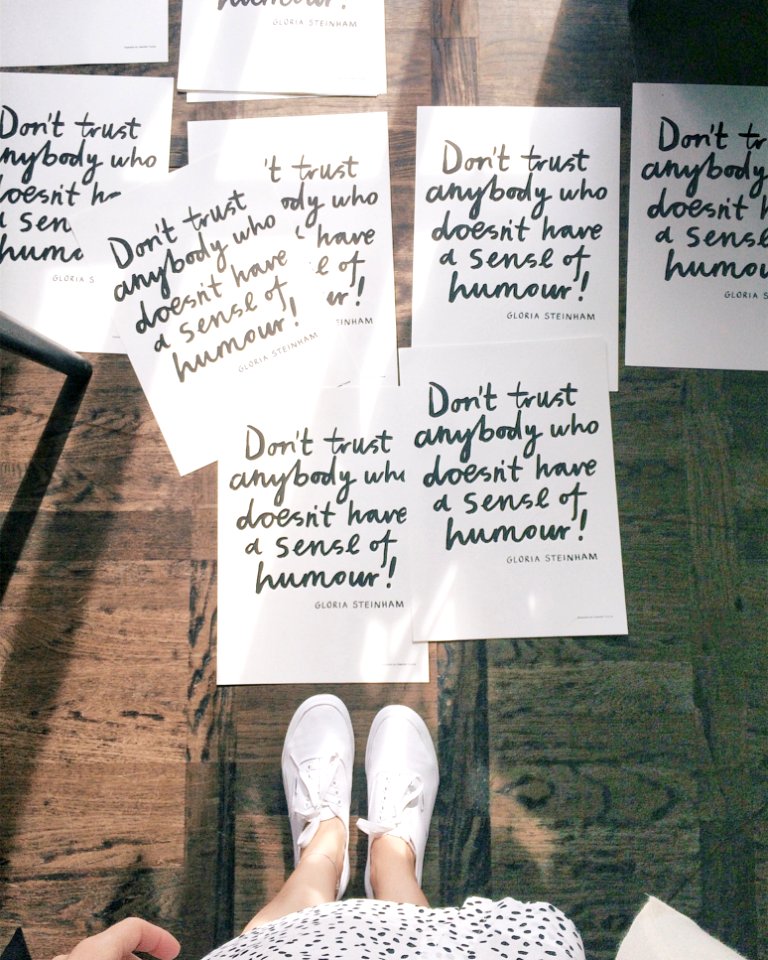 humour!
GLORIA STEINHAM
Don't trust
anybody who
doesn't
a sen
hum
GLORIA S
't trust
ody who
have
of
ur!
EINHAM
Don't trust
anybody who
doesn't have
a sense of
humour!
GLORIA STEINHAM
Don't trust
anybody who
doesn't have
a sense of
humour!
GLORIA STEINHAM
Don't tr
anybody
doesn't h
a sense
humou
GLORIA S
Don't trust
anybody who
doesn't have
a sense of
humour!
GLORIA STEINHAM
Don't trust
anybody who
doesn't have
a sense of
humour!
GLORIA STEINHAM